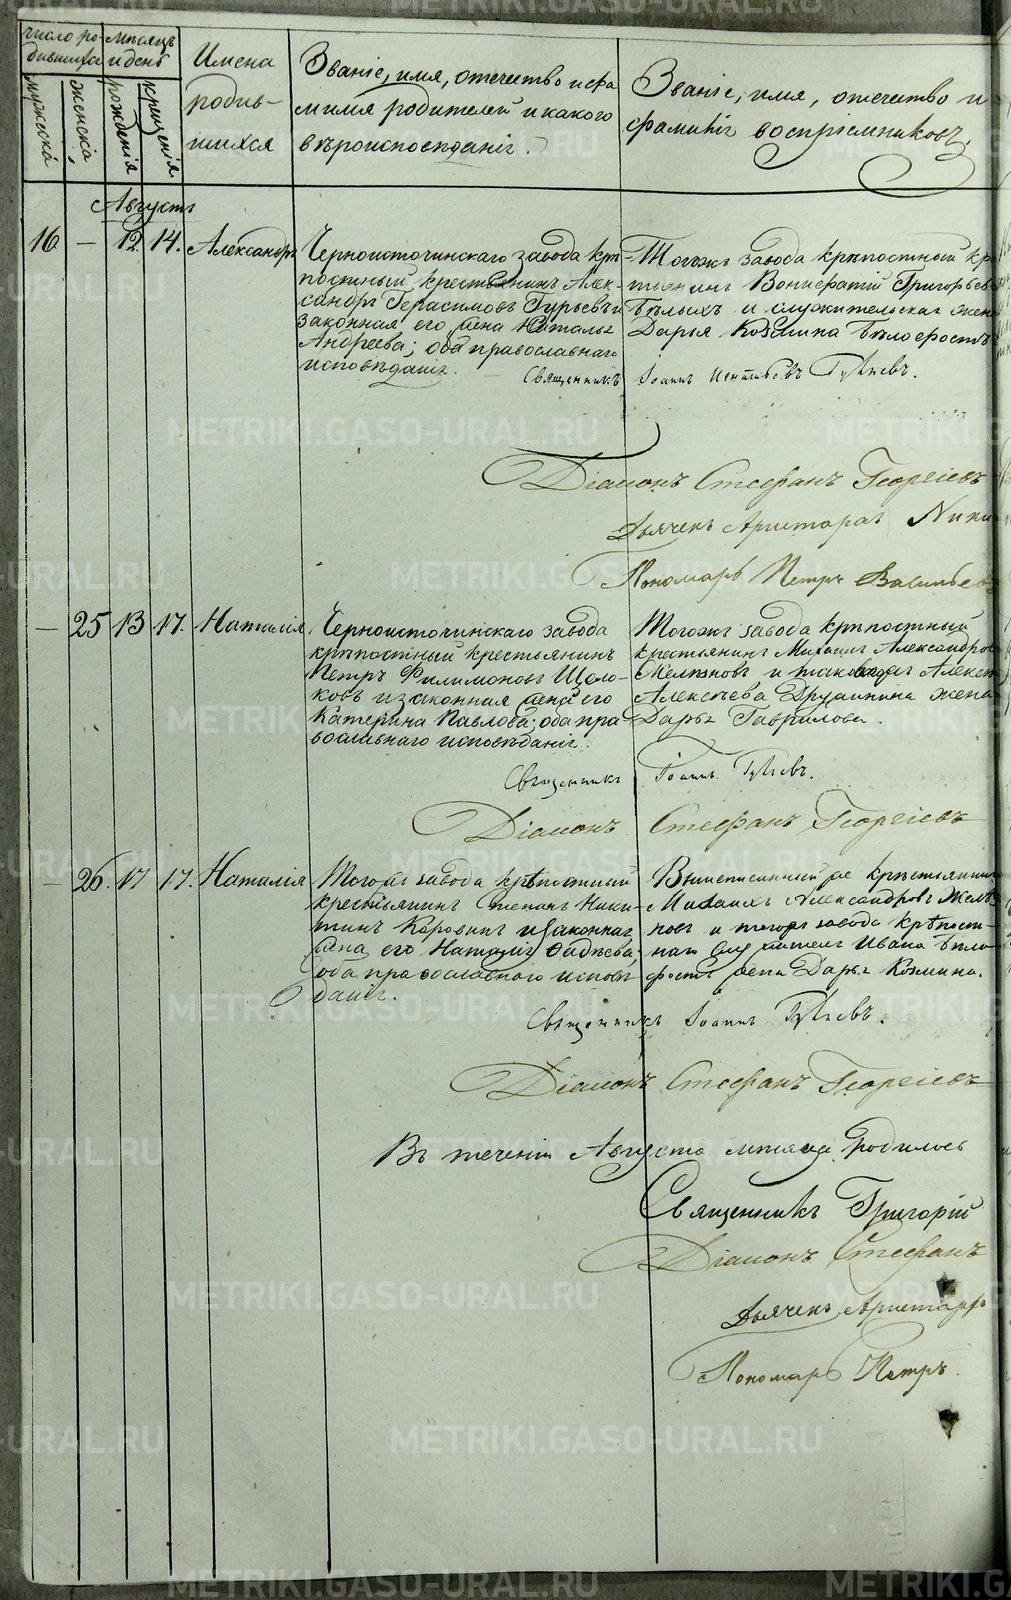 число ро-
дившихся
мужеска
женска
мѣсяцъ
и день
рожденія
крещенія
Имена
родив-
шихся
Званіе, имя, отчество и фа
милія родителей и какого
вѣроисповѣданія.
Званіе, имя, отчество и
фамилія воспріемниковъ.
Августъ
16 — 12. 14. Александръ
Черноисточинскаго завода крѣ-
постный крестьянинъ Алек-
сандръ Герасимовъ Гурьевъ и
законная его жена Наталья
Андреева; оба православнаго
исповѣданія.
Тогожъ завода крѣпостный кре
стьянинъ Вонифатій Григорьевъ
Бѣлыхъ и служительская жена
Дарья Козмина Бѣлофостъ
Священникъ Іоаннъ
Діаконъ Стефанъ Георгіевъ
Дьячекъ Аристархъ Ники
Пономарь Петръ Васильевъ
— 25 13 17. Наталія.
Черноисточинскаго завода
крѣпостный крестьянинъ
Петръ Филимоновъ Щел-
ковъ и законная жена его
Катерина Павлова; оба пра
вославнаго исповѣданія.
Тогожъ завода крѣпостный
крестьянинъ Михаилъ Александров
и таковагожъ Алекс
Алексѣева Дружинина жена
Дарья Гаврилова.
Священникъ Іоаннъ
Діаконъ Стефанъ Георгіевъ
— 26. 17 17. Наталія
Тогожъ завода крѣпостный
крестьянинъ Степанъ Ники-
тинъ Коровинъ и законная
жена его Наталія Фадѣева
оба православнаго исповѣ
данія.
Вышеписанный же крестьянинъ
Михаилъ Александровъ
новъ и тогожъ завода крѣпост-
наго служителя Ивана Бѣло
фостъ жена Дарья Козмина.
Священникъ Іоаннъ
Діаконъ Стефанъ Георгіевъ
Въ теченіи Августа мѣсяца родилось
Священникъ Григорій
Діаконъ Стефанъ
Дьячекъ Аристархъ
Пономарь Петръ.
METRIKI.GASO-URAL.RU